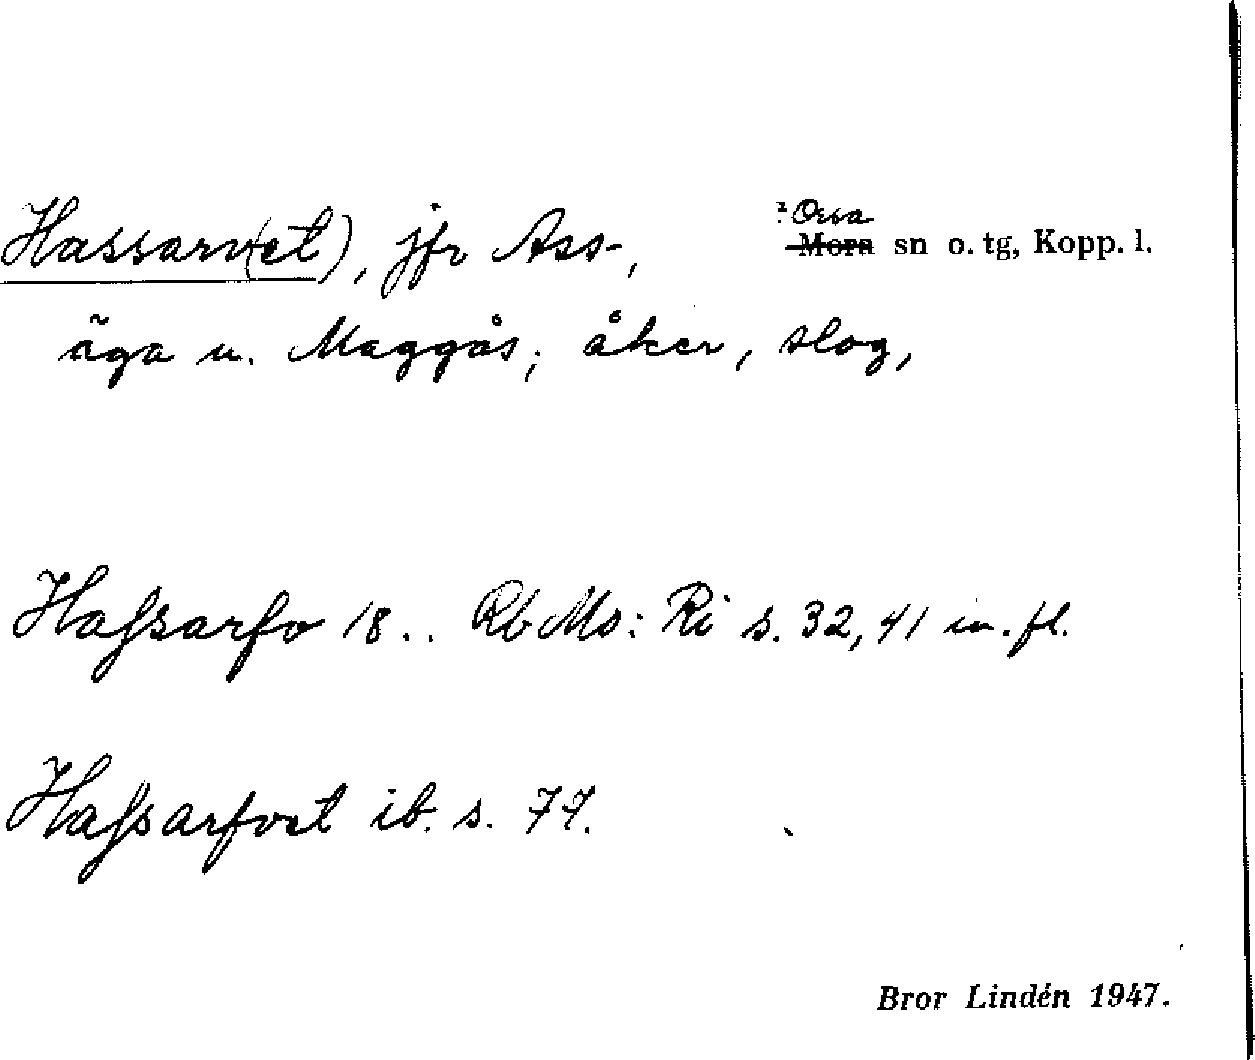 Hassarv(et), jfr Ass-,
? Orsa
Mora sn o. tg, Kopp. l.
äga u. Maggås; åker, slog,
Hafsarfv 18.. Rb Ms: Ri s. 32, 41 m. fl.
Hafsarfvet ib. s. 77.
Bror Lindén 1947.